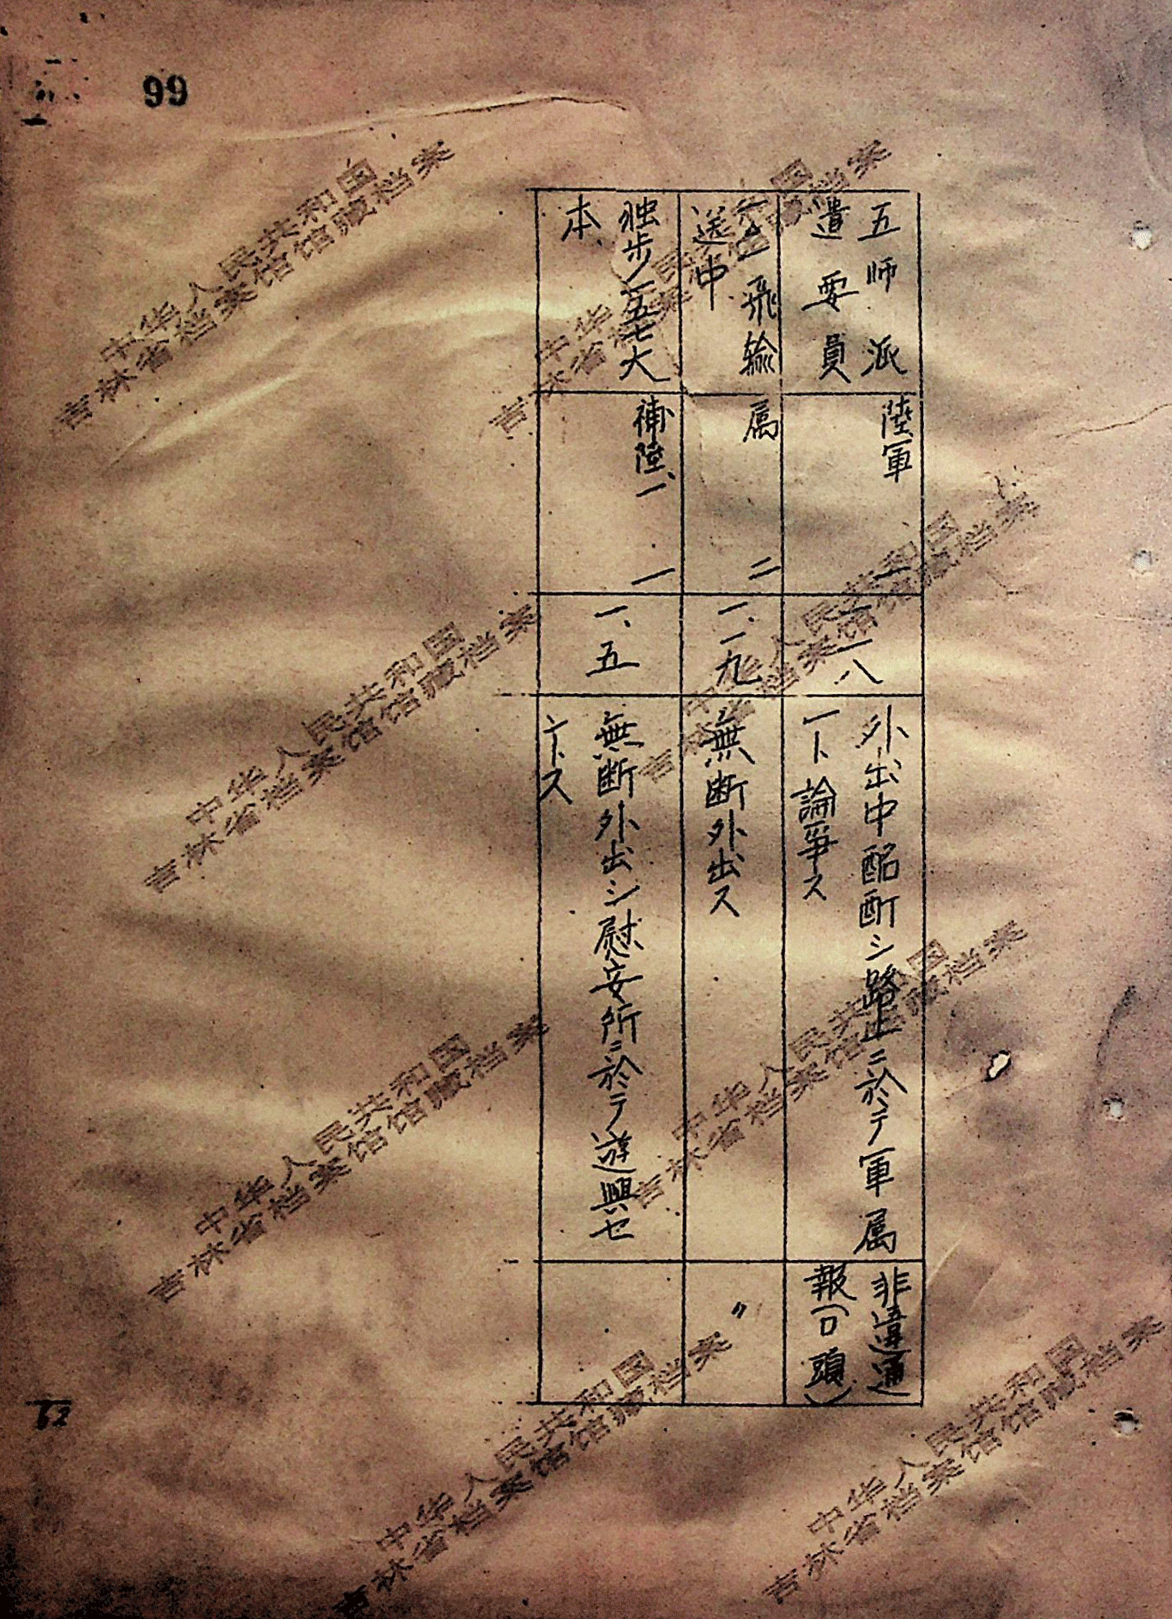 99
五師派
遣要員
陸軍
一
一八
外出中酩酊シ路上ニ於テ軍属
一ト論争ス
非違通
報(口頭)
飛輸
送中
属
二
一、一九
無断外出ス
〃
独歩一五七大
本、
補陸、一
一
一、五
無断外出シ慰安所ニ於テ遊興セ
ントス
62
中华人民共和国
吉林省档案馆馆藏档案
中华人民共和国
吉林省档案馆馆藏档案
中华人民共和国
吉林省档案馆馆藏档案
中华人民共和国
吉林省档案馆馆藏档案
中华人民共和国
吉林省档案馆馆藏档案
中华人民共和国
吉林省档案馆馆藏档案
中华人民共和国
吉林省档案馆馆藏档案
中华人民共和国
吉林省档案馆馆藏档案